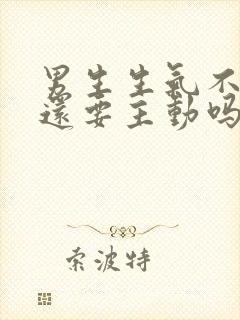 男生生氣不
還要主動吗
索波特